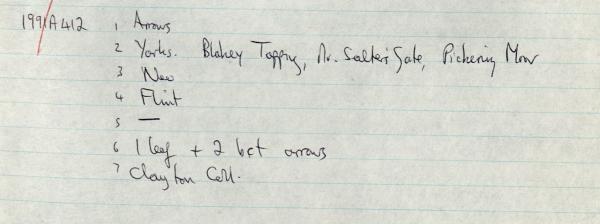 1991A412 1 Arrows
2 Yorks. Blakey Topping, Nr. Salter's Gate, Pickering Moor
3 Neo
4 Flint
5 —
6 1 leaf + 2 b&t arrows
7 Clayton Coll.